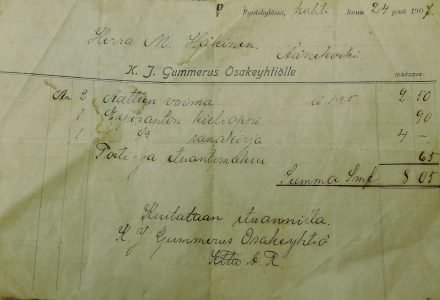 Jyväskylässä, huhti kuun 24 p:nä 1907.
Herra M. Häkinen.
Äänekoski
K. J. Gummerus Osakeyhtiölle
maksava:
An 2 Aattten voima à 1.25 2 50
1 Esperanton kielioppi 90
1 Da sanakirja 4 –
Posti- ja etuantimaksu 65
Summa Smk 8 05
Kuitataan
K. J. Gummerus Osakeyhtiö